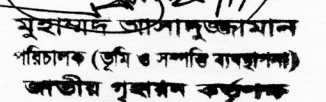 মুহাম্মদ আসাদুজ্জামান
পরিচালক (ভূমি ও সম্পত্তি ব্যবস্থাপনা)
জাতীয় গৃহায়ন কর্তৃপক্ষ